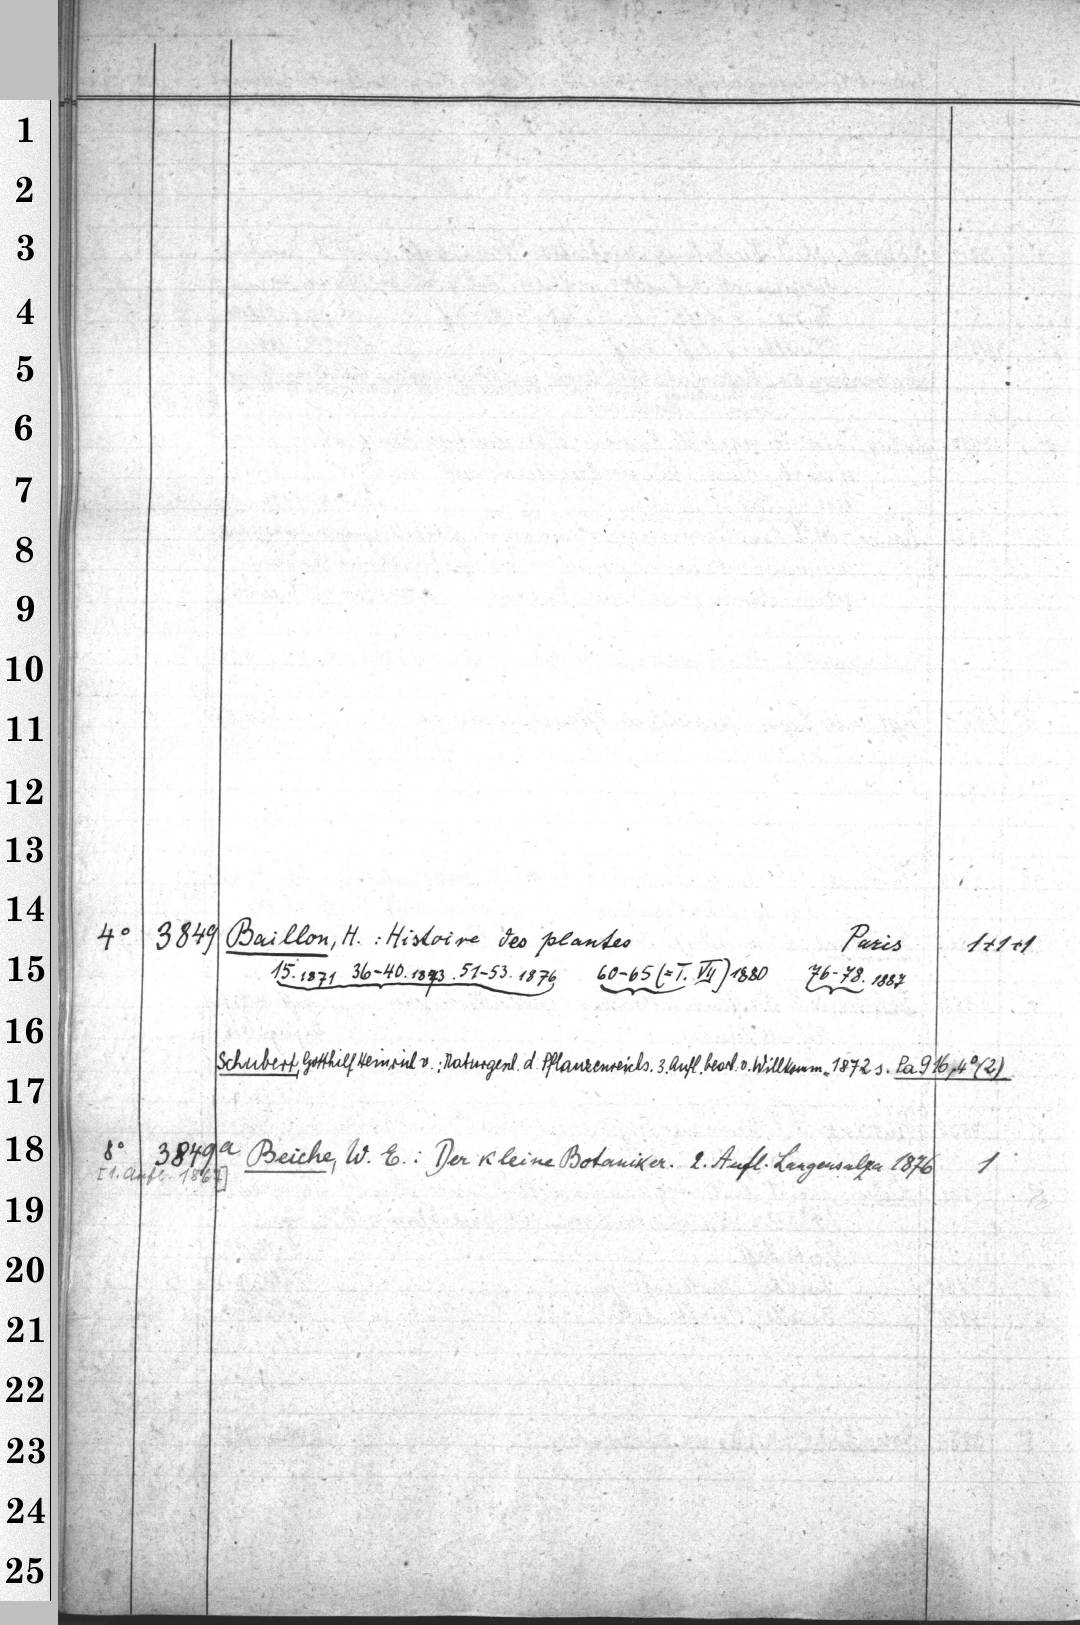 1
2
3
4
5
6
7
8
9
10
11
12
13
14
4° 3849 Baillon, H. : Histoire des plantes Paris 1+1+1
15
15. 1871 36-40. 1873 .51-53. 1876 60-65 (=T. VII) 1880 76-78. 1887
16
Schubert, Gotthilf Heinrich v. : Naturgesch. d. Pflanzenreichs. 3. Aufl. bearb. v. Willkomm. 1872 s. Pa 916, 4° (2)
17
18
8° 3849a Beiche, W. E. : Der kleine Botaniker. 2. Aufl. Langensalza 1876 1
[1. Aufl. 1867]
19
20
21
22
23
24
25